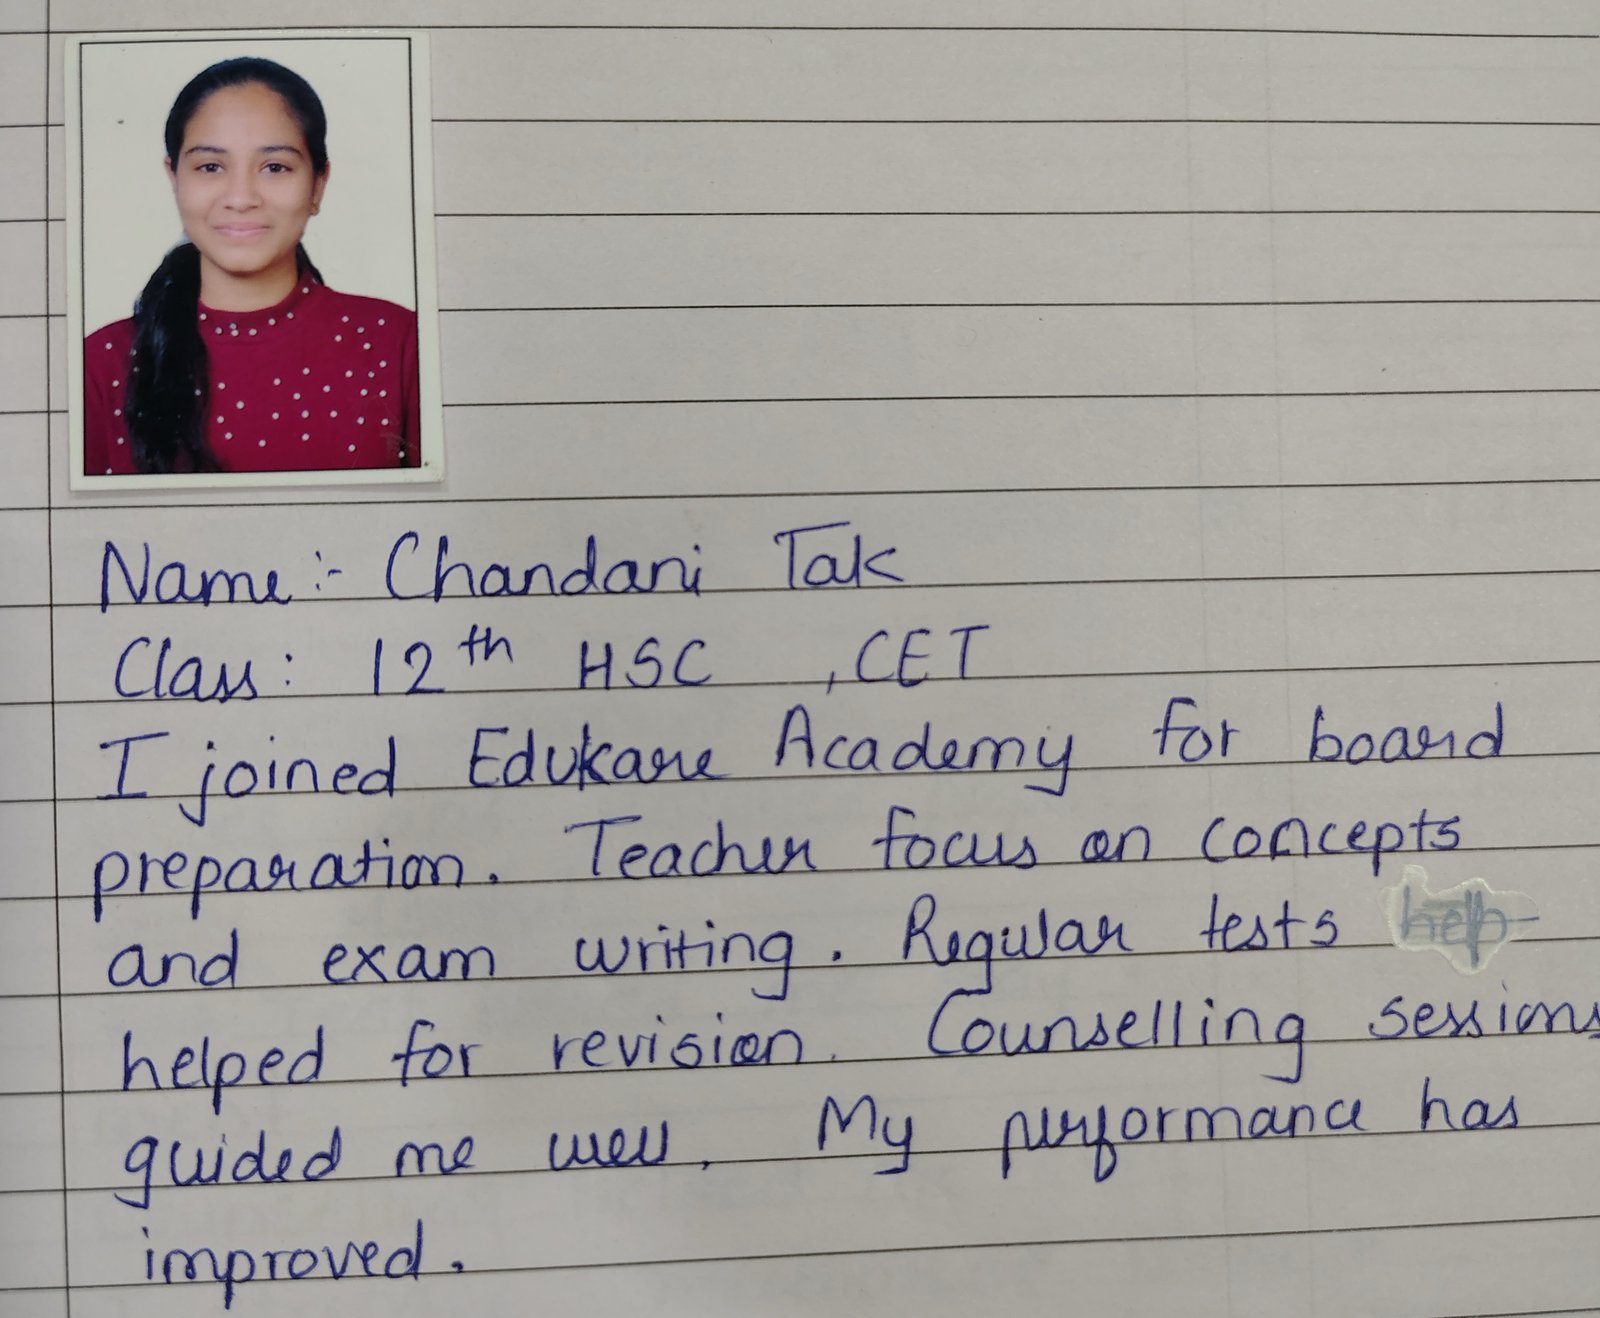 Name:- Chandani Tak
Class: 12th HSC , CET
I joined Edukare Academy for board
preparation. Teacher focus on concepts
and exam writing. Regular tests help
helped for revision. Counselling sessions
guided me well. My performance has
improved.